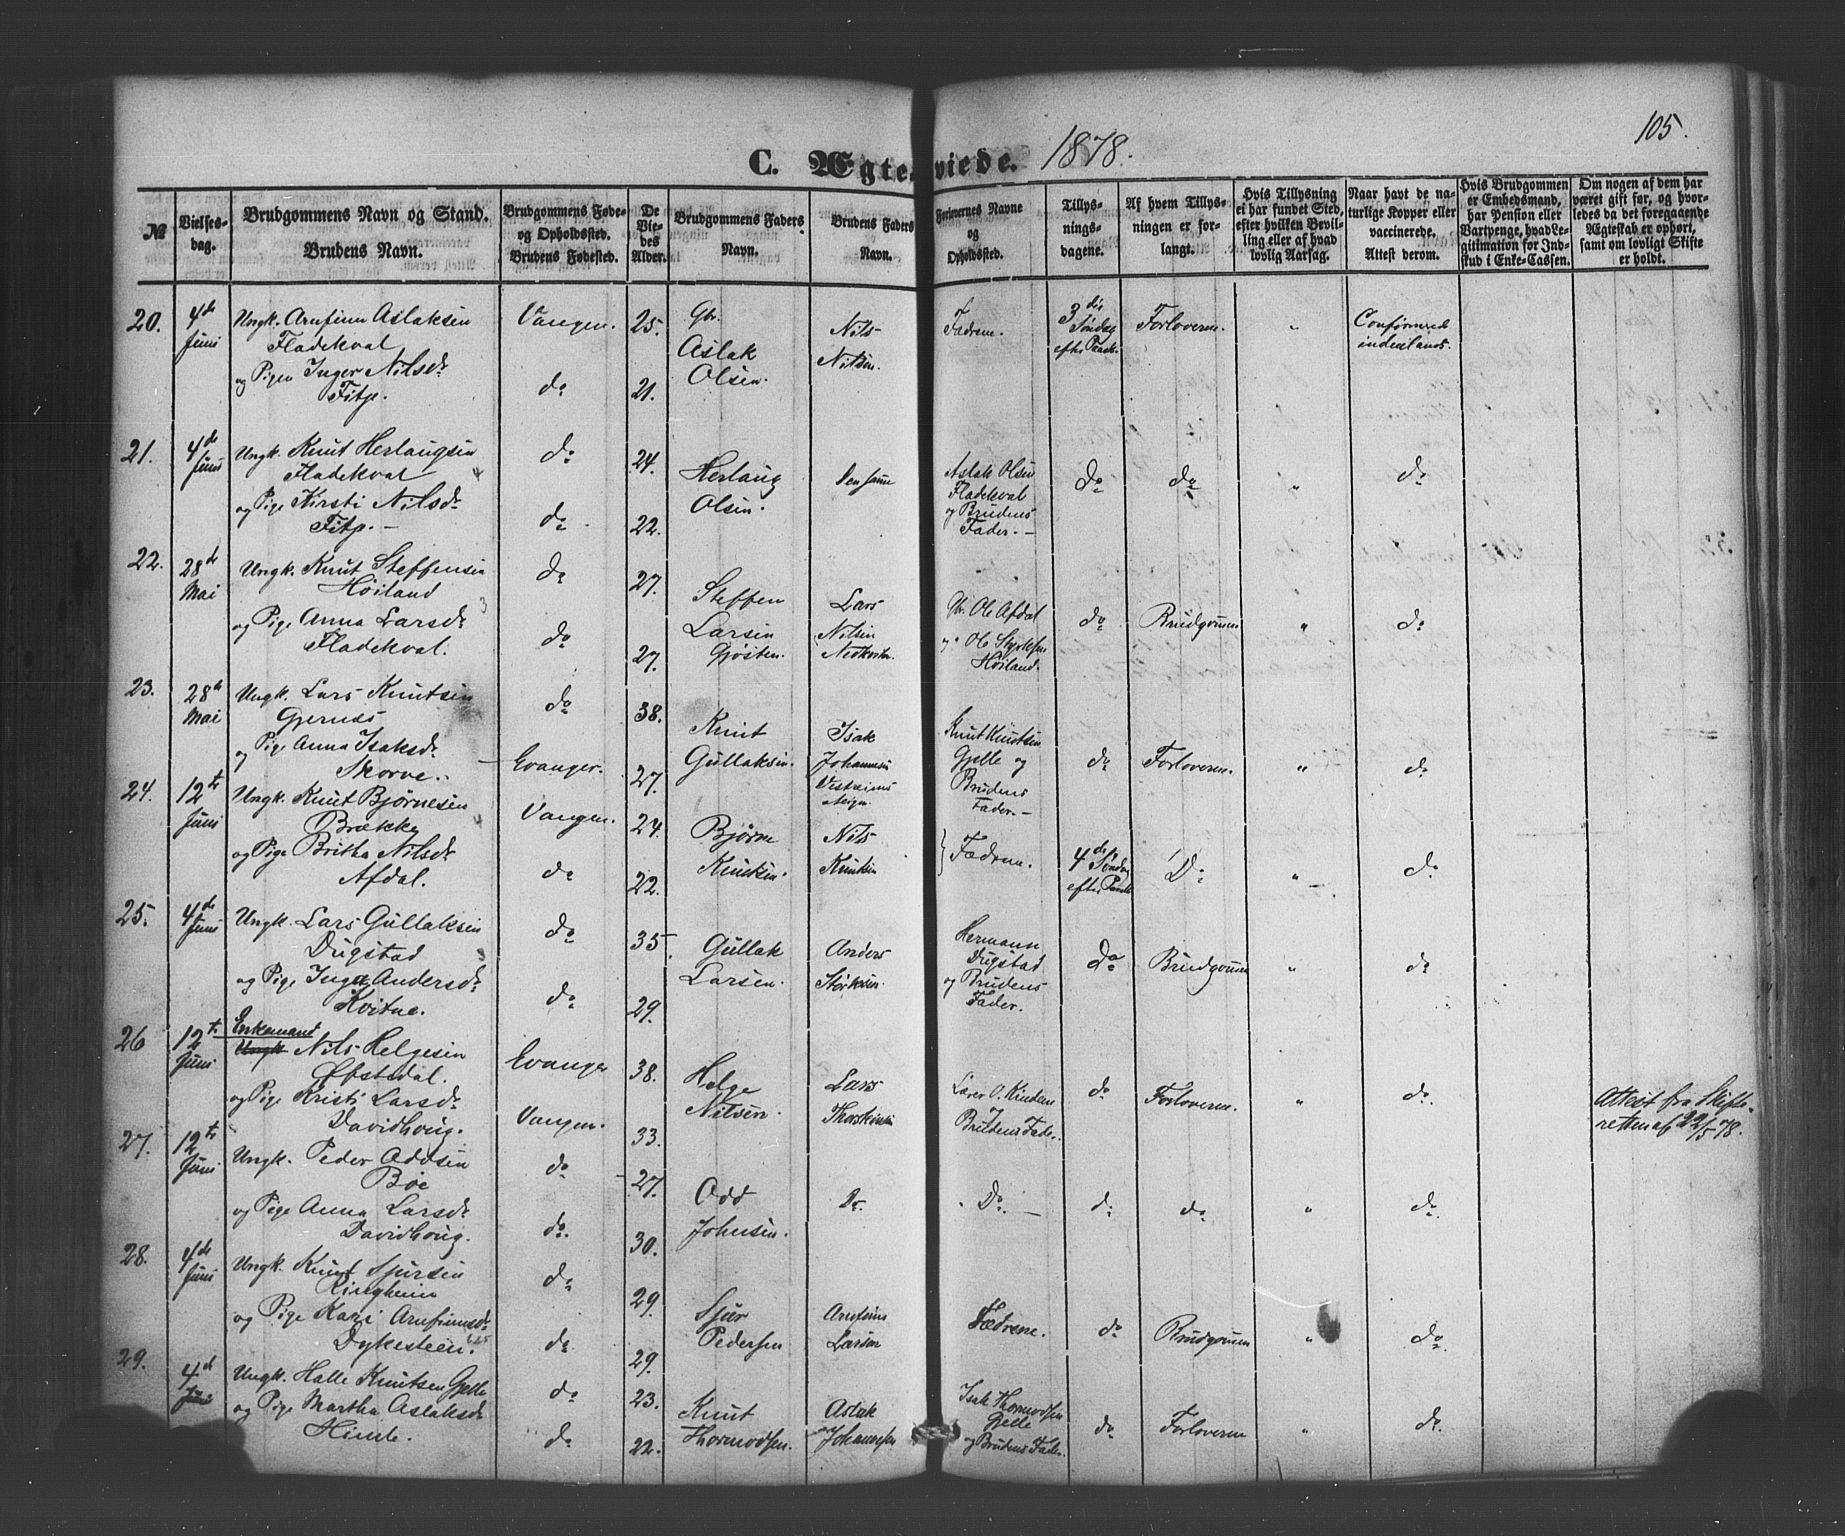 105.
C. Ægteviede. 1878.
№
Vielses-
dag.
Brudgommens Navn og Stand.
Brudens Navn.
Brudgommens Føde-
og Opholdssted.
Brudens Fødested.
De
Vie-
des
Alder.
Brudgommens Faders
Navn.
Brudens Faders
Navn.
Forlovernes Navne
og
Opholdssted.
Tillys-
nings-
dagene.
Af hvem Tillys-
ningen er for-
langt.
Hvis Tillysning
ei har fundet Sted,
efter hvilken Bevil-
ling eller af hvad
lovlig Aarsag.
Naar havt de na-
turlige Kopper eller
vaccinerede.
Attest derom.
Hvis Brudgommen
er Embedsmand,
har Pension eller
Vartpenge, hvad Le-
gitimation for Ind-
skud i Enke-Cassen.
Om nogen af dem har
været gift før, og hvor-
ledes da det foregaaende
Ægteskab er ophørt,
samt om lovligt Skifte
er holdt.
20. 4de Juni
Ungk. Arnfinn Aslaksen
Fladekval
og Pigen Inger Nilsdr
Fitje.
Vangen. do
25. 21.
Gbr.
Aslak
Olsen.
Nils
Nilsen.
Fædrene.
3die
Søndag
efter Paask.
Forloverne. "
Confirmered
indenlands.
21. 4de Juni
Ungk. Knut Herlaugsen
Fladekval
og Pige Kirsti Nilsdr
Fitje. —
do do
24. 22.
Herlaug
Olsen.
Densamme
Aslak Olsen
Fladekval
og Brudens
Fader. —
do do " do
22. 28de Mai
Ungk. Knut Steffensen
Høiland
og Pige Anna Larsdr
Fladekval.
do do
27. 27.
Steffen
Larsen
Gjøsten.
Lars
Nilsen
Nedkvitn.
Gbr. Ole Afdal
og Ole Styrksen
Høiland.
do Brudgommen " do
23. 28de Mai
Ungk. Lars Knutsen
Gjernes
og Pige Anna Isaksdr
Skorve.
do Evanger.
38. 27.
Knut
Gullaksen.
Isak
Johannesen
Knut Knutsen
Gjelle og
Brudens
Fader. —
do Forloverne. " do
24. 12te Juni
Ungk. Knut Bjørnesen
Brække
og Pige Britha Nilsdr
Afdal.
Vangen. do
24. 22.
Bjørne
Knutsen.
Nils
Knutsen
Fædrene.
4de
Søndag
efter Paask
Do " do
25. 4de Juni
Ungk. Lars Gullaksen
Dugstad
og Pige Inga Andersdr
Kvitne.
do do
35. 29.
Gullak
Larsen.
Anders
Størksen.
Hermann
Dugstad
og Brudens
Fader.
do Brudgommen " do
26 12te Juni
Enkemand
Ungk Nils Helgesen
Øfstedal.
og Pige Kristi Larsdr
Davidhoug.
Evanger Vangen.
38. 33.
Helge
Nilsen.
Lars
Lærer O. Kindem
Brudens Fader.
do Forloverne. " do.
Attest fra Skifte-
retten af 22/5 78.
27. 12te Juni
Ungk. Peder Oddsen
Bøe
og Pige Anna Larsdr
Davidhoug.
do do.
27. 30.
Odd
Johnsen.
Do.
Do. —
do do " do.
28. 4de Juni
Ungk. Knut Sjursen
Ringheim
og Pige Kari Arnfinnsdr
Dykesteen.
do do
29. 29.
Sjur
Pedersen
Arnfinn
Larsen
Fædrene.
do Brudgommen " do.
29. 4de Juni
Ungk. Halle Knutsen Gjelle
og Pige Martha Aslaksdr
Hirnle.
do do
23. 22.
Knut
Thormodsen.
Aslak
Johannesen
Isak Thormodsen
Gjelle
og Brudens Fader.
do Forloverne " do.